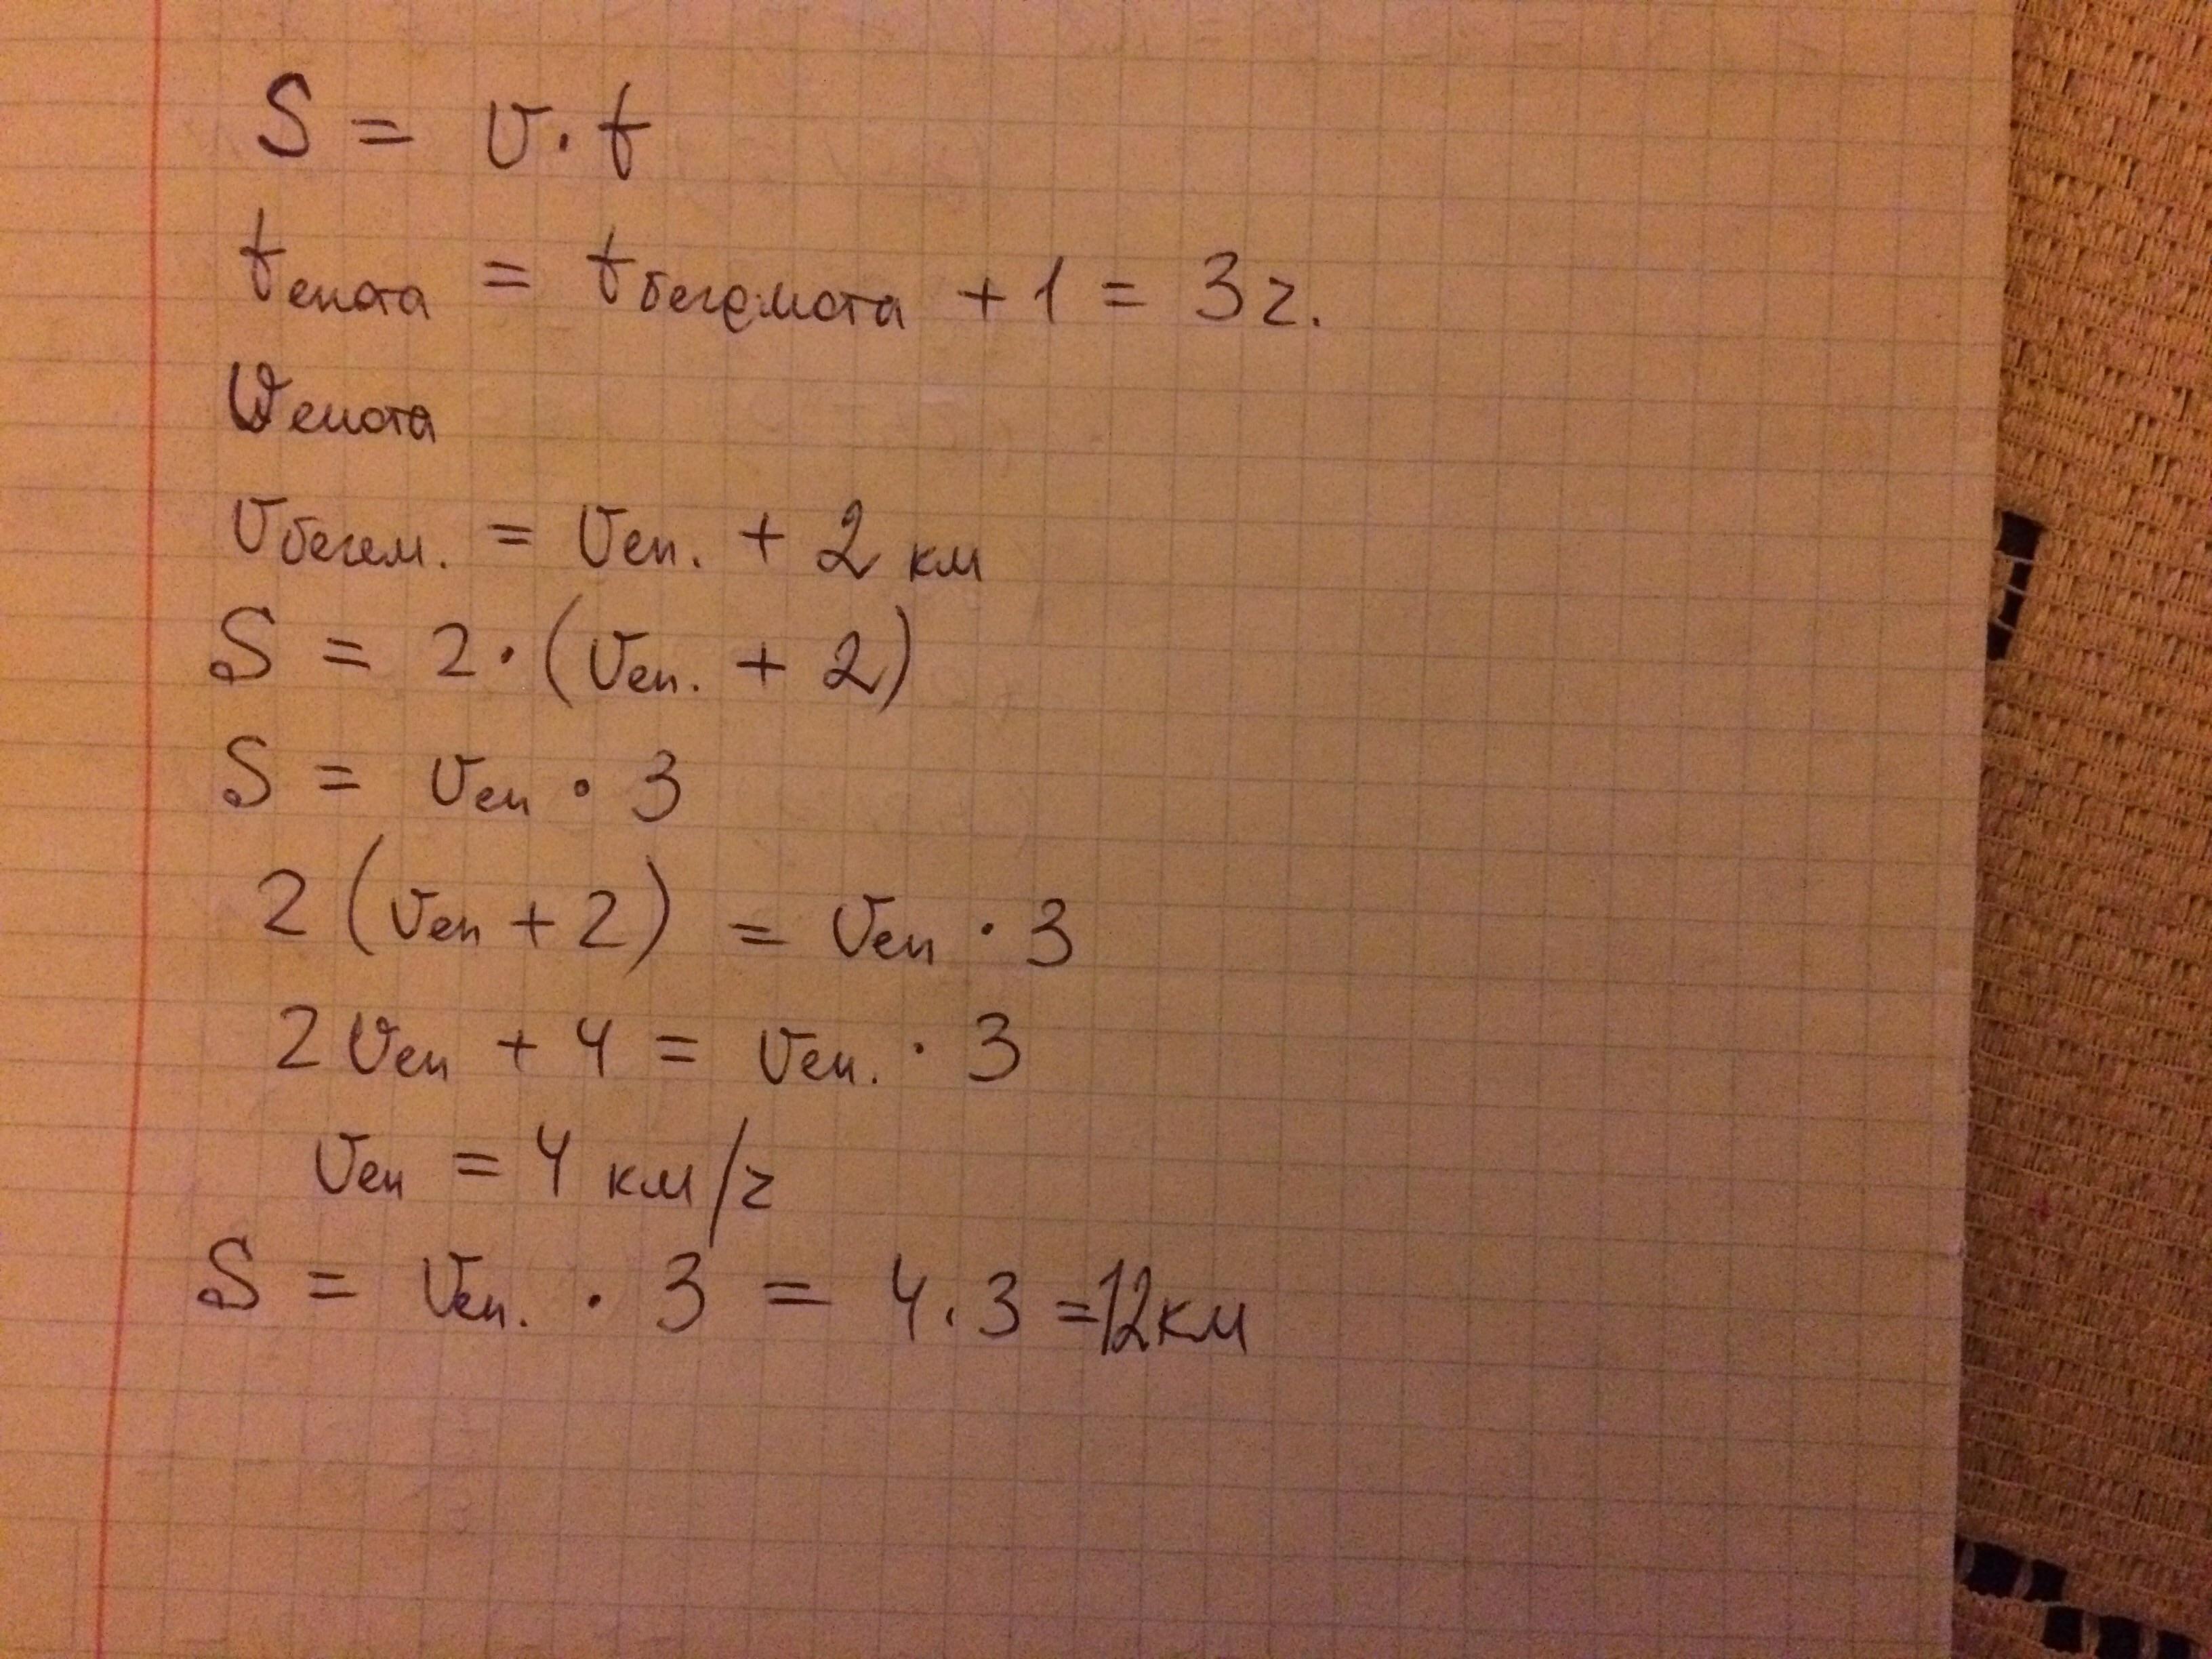 S = v · t
t енота = t бегемота + 1 = 3 ч.
v енота
v бегем. = v ен. + 2 км
S = 2 · (v ен. + 2)
S = v ен · 3
2 (v ен + 2) = v ен · 3
2 v ен + 4 = v ен. · 3
v ен = 4 км/ч
S = v ен. · 3 = 4 · 3 = 12 км